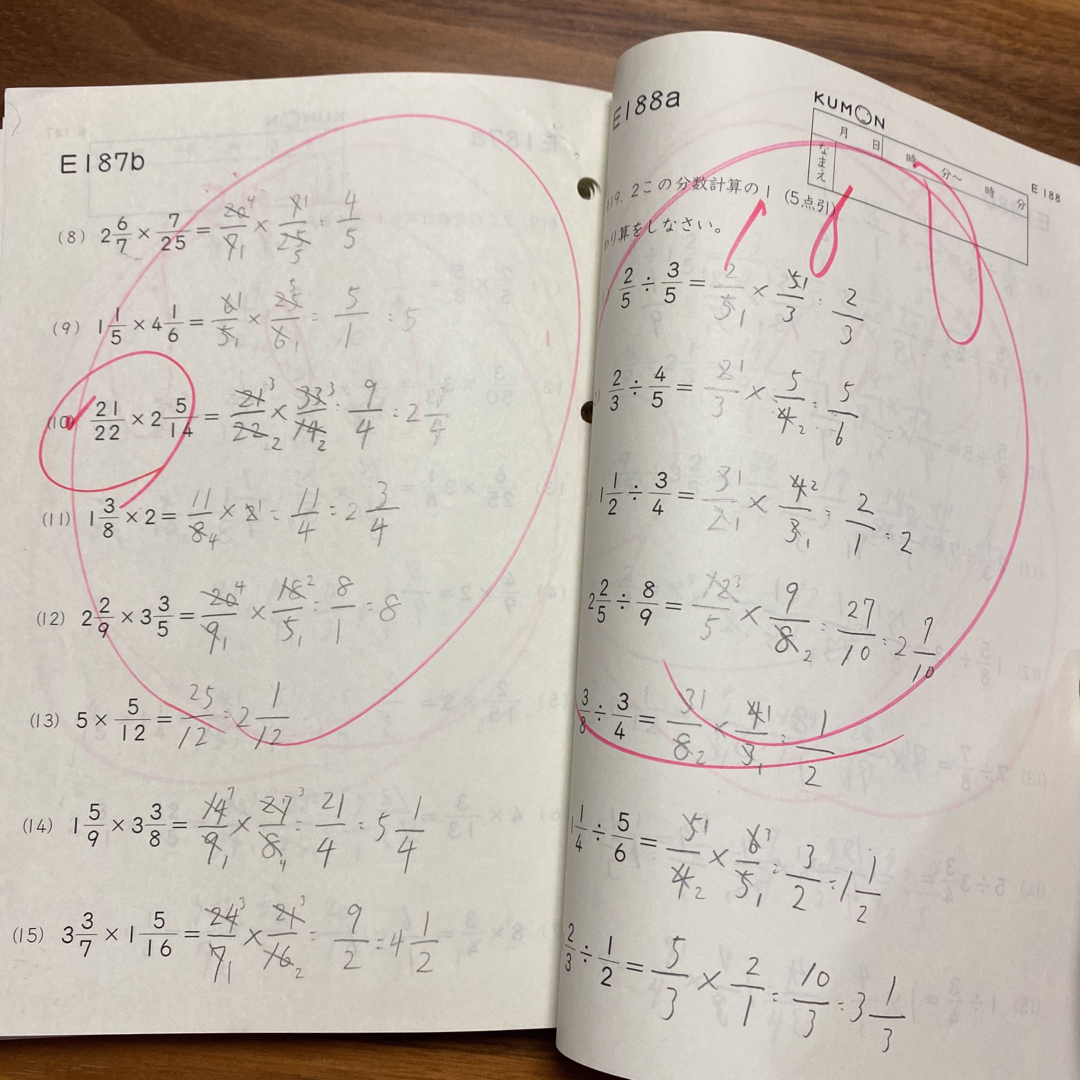 E187b
(8) 2 6/7 × 7/25 = 20/7 × 7/25 = 4/5
(9) 1 1/5 × 4 1/6 = 6/5 × 25/6 = 5/1 = 5
(10) 21/22 × 2 5/14 = 21/22 × 33/14 = 9/4 = 2 1/4
(11) 1 3/8 × 2 = 11/8 × 2 = 11/4 = 2 3/4
(12) 2 2/9 × 3 3/5 = 20/9 × 18/5 = 8/1 = 8
(13) 5 × 5/12 = 25/12 = 2 1/12
(14) 1 5/9 × 3 3/8 = 14/9 × 27/8 = 21/4 = 5 1/4
(15) 3 3/7 × 1 5/16 = 24/7 × 21/16 = 9/2 = 4 1/2
E188a
KUMON
月 日 時 分〜 時 分
なまえ
E 188
19.2この分数計算の1 (5点引)
わり算をしなさい。
100
2/5 ÷ 3/5 = 2/5 × 5/3 = 2/3
2/3 ÷ 4/5 = 2/3 × 5/4 = 5/6
1 1/2 ÷ 3/4 = 3/2 × 4/3 = 2/1 = 2
2 2/5 ÷ 8/9 = 12/5 × 9/8 = 27/10 = 2 7/10
3/8 ÷ 3/4 = 3/8 × 4/3 = 1/2
1 1/4 ÷ 5/6 = 5/4 × 6/5 = 3/2 = 1 1/2
2/3 ÷ 1/2 = 5/3 × 2/1 = 10/3 = 3 1/3